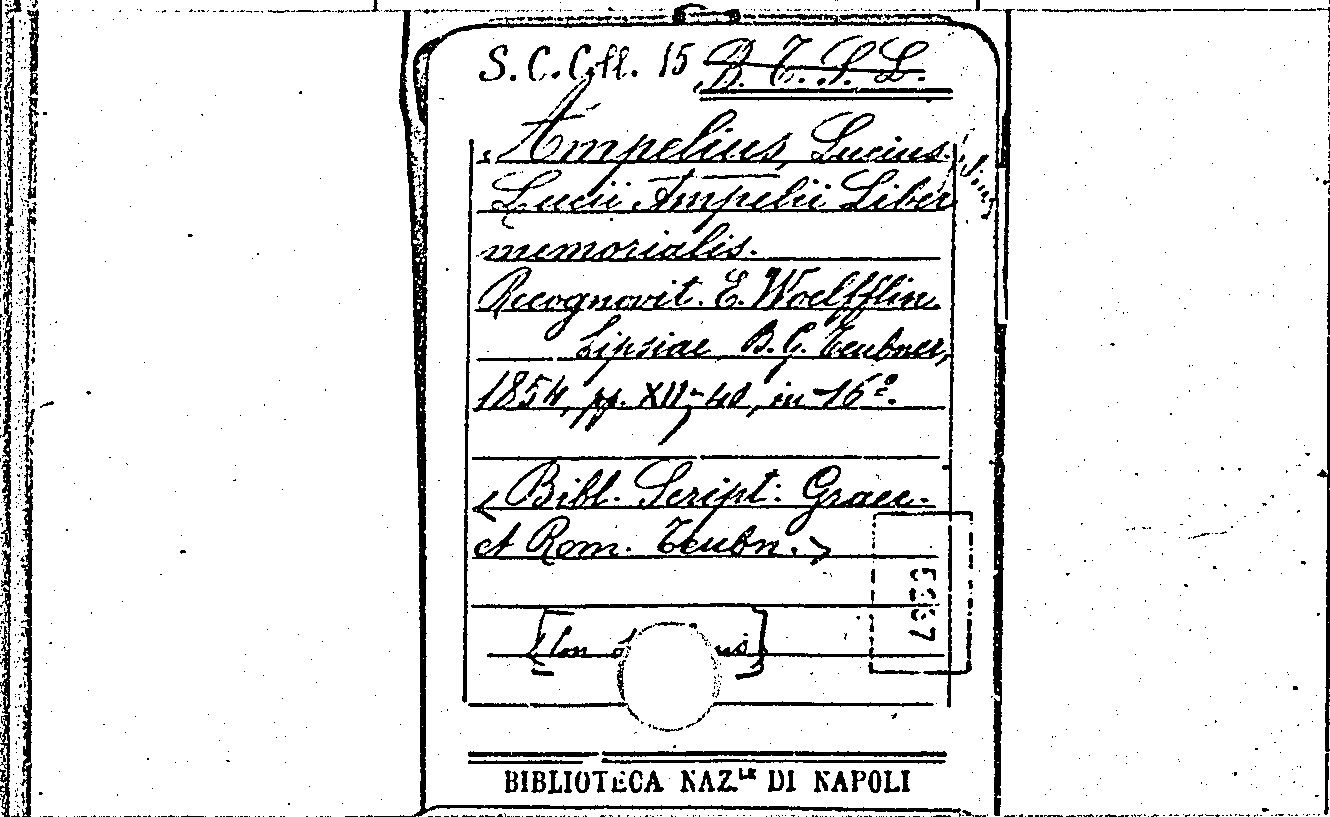 S. C. Coll. 15 B. T. S. L.
Ampelius, Lucius.
Lucii Ampelii Liber
memorialis.
Recognovit. E. Woelfflin.
Lipsiae, B. G. Teubner,
1854, pp. XII-40, in-16º.
< Bibl. Script. Graec.
et Rom. Teubn. >
5237
BIBLIOTECA NAZ.LE DI NAPOLI